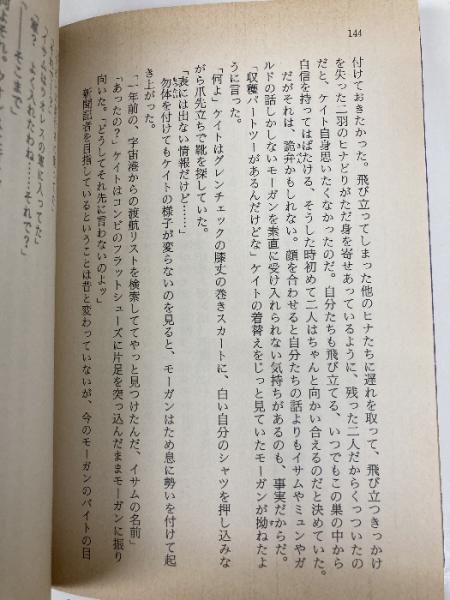 144
付けておきたかった。飛び立ってしまった他のヒナたちに遅れを取って、飛び立つきっかけ
を失った二羽のヒナどりがただ身を寄せあっているように、残った二人だからくっついたの
だと、ケイト自身思いたくなかったのだ。自分たちも飛び立てる、いつでもこの巣の中から
自信を持ってはばたける、そうした時初めて二人はちゃんと向かい合えるのだと決めていた。
だがそれは、詭弁かもしれない。顔を合わせると自分たちの話よりもイサムやミュンやガ
ルドの話しかしないモーガンを素直に受け入れられない気持ちがあるのも、事実だからだ。
「収穫パートツーがあるんだけどな」ケイトの着替えをじっと見ていたモーガンが拗ねたよ
うに言った。
「何よ」ケイトはグレンチェックの膝丈の巻きスカートに、白い自分のシャツを押し込みな
がら爪先立ちで靴を探していた。
「表には出ない情報だけど……」
勿体を付けてもケイトの様子が変らないのを見ると、モーガンはため息に勢いを付けて起
き上がった。
「一年前の、宇宙港からの渡航リストを検索しててやっと見つけたんだ、イサムの名前」
「あったの？」ケイトはコンビのフラットシューズに片足を突っ込んだままモーガンに振り
向いた。「どうしてそれ先に言わないのよッ」
新聞記者を目指しているということは昔と変わっていないが、今のモーガンのバイトの目